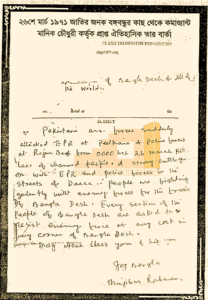 ২৬শে মার্চ ১৯৭১ জাতির জনক বঙ্গবন্ধুর কাছ থেকে কমান্ড্যান্ট
মানিক চৌধুরী কর্তৃক প্রাপ্ত ঐতিহাসিক তার বার্তা
of Bangla Desh & all of
the World
Pakistani forces suddenly
attacked EPR at Peelkhana & Police force
at Rajar Bagh from 0000 hrs 26 march
of unarmed people. A strong battle
on with EPR and police force in the
streets of Dacca. People are fighting
gallantly with enemy forces for the
of Bangla Desh. Every section of the
people of Bangla Desh are asked to
resist enemy force at any cost in
every corner of Bangla Desh.
May Allah bless you
Joy Bangla
Mujibur Rahman